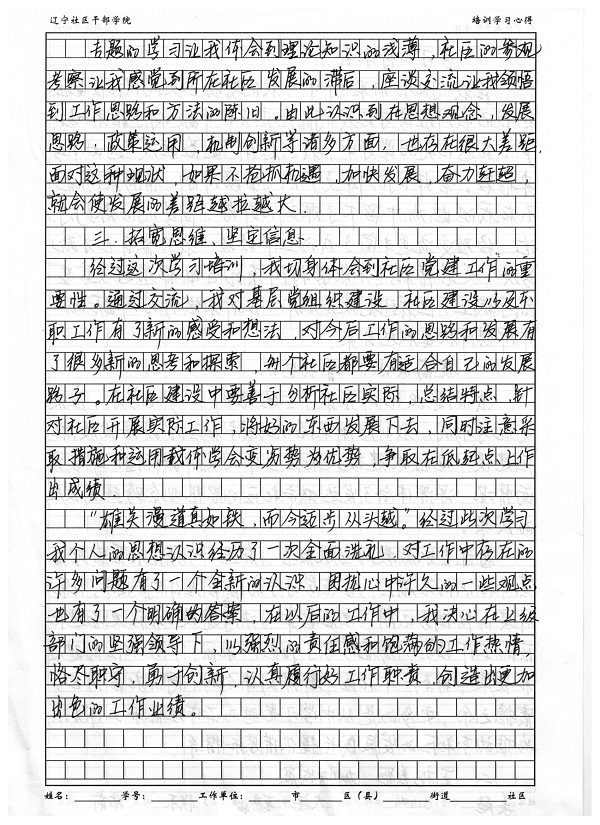 辽宁社区干部学院 培训学习心得
专题的学习让我体会到理论知识的浅薄,社区的参观
考察让我感觉到所在社区发展的滞后,座谈交流让我领悟
到工作思路和方法的陈旧。由此认识到在思想观念,发展
思路,政策运用,机制创新等诸多方面,也存在很大差距,
面对这种现状,如果不抢抓机遇,加快发展,奋力赶超,
就会使发展的差距越拉越大.
三.拓宽思维、坚定信息.
经过这次学习培训,我切身体会到社区党建工作的重
要性。通过交流,我对基层党组织建设,社区建设以及本
职工作有了新的感受和想法,对今后工作的思路和发展有
了很多新的思考和探索,每个社区都要有适合自己的发展
路子。在社区建设中要善于分析社区实际,总结特点,针
对社区开展实际工作,将好的东西发展下去,同时注意采
取措施和运用载体学会变劣势为优势,争取在低起点上作
出成绩.
“雄关漫道真如铁,而今迈步从头越。”经过此次学习,
我个人的思想认识经历了一次全面洗礼,对工作中存在的
许多问题有了一个全新的认识,困扰心中许久的一些观点
也有了一个明确的答案,在以后的工作中,我决心在上级
部门的坚强领导下,以强烈的责任感和饱满的工作热情,
恪尽职守,勇于创新,认真履行好工作职责,创造出更加
出色的工作业绩。
姓名: 学号: 工作单位: 市 区(县) 街道 社区